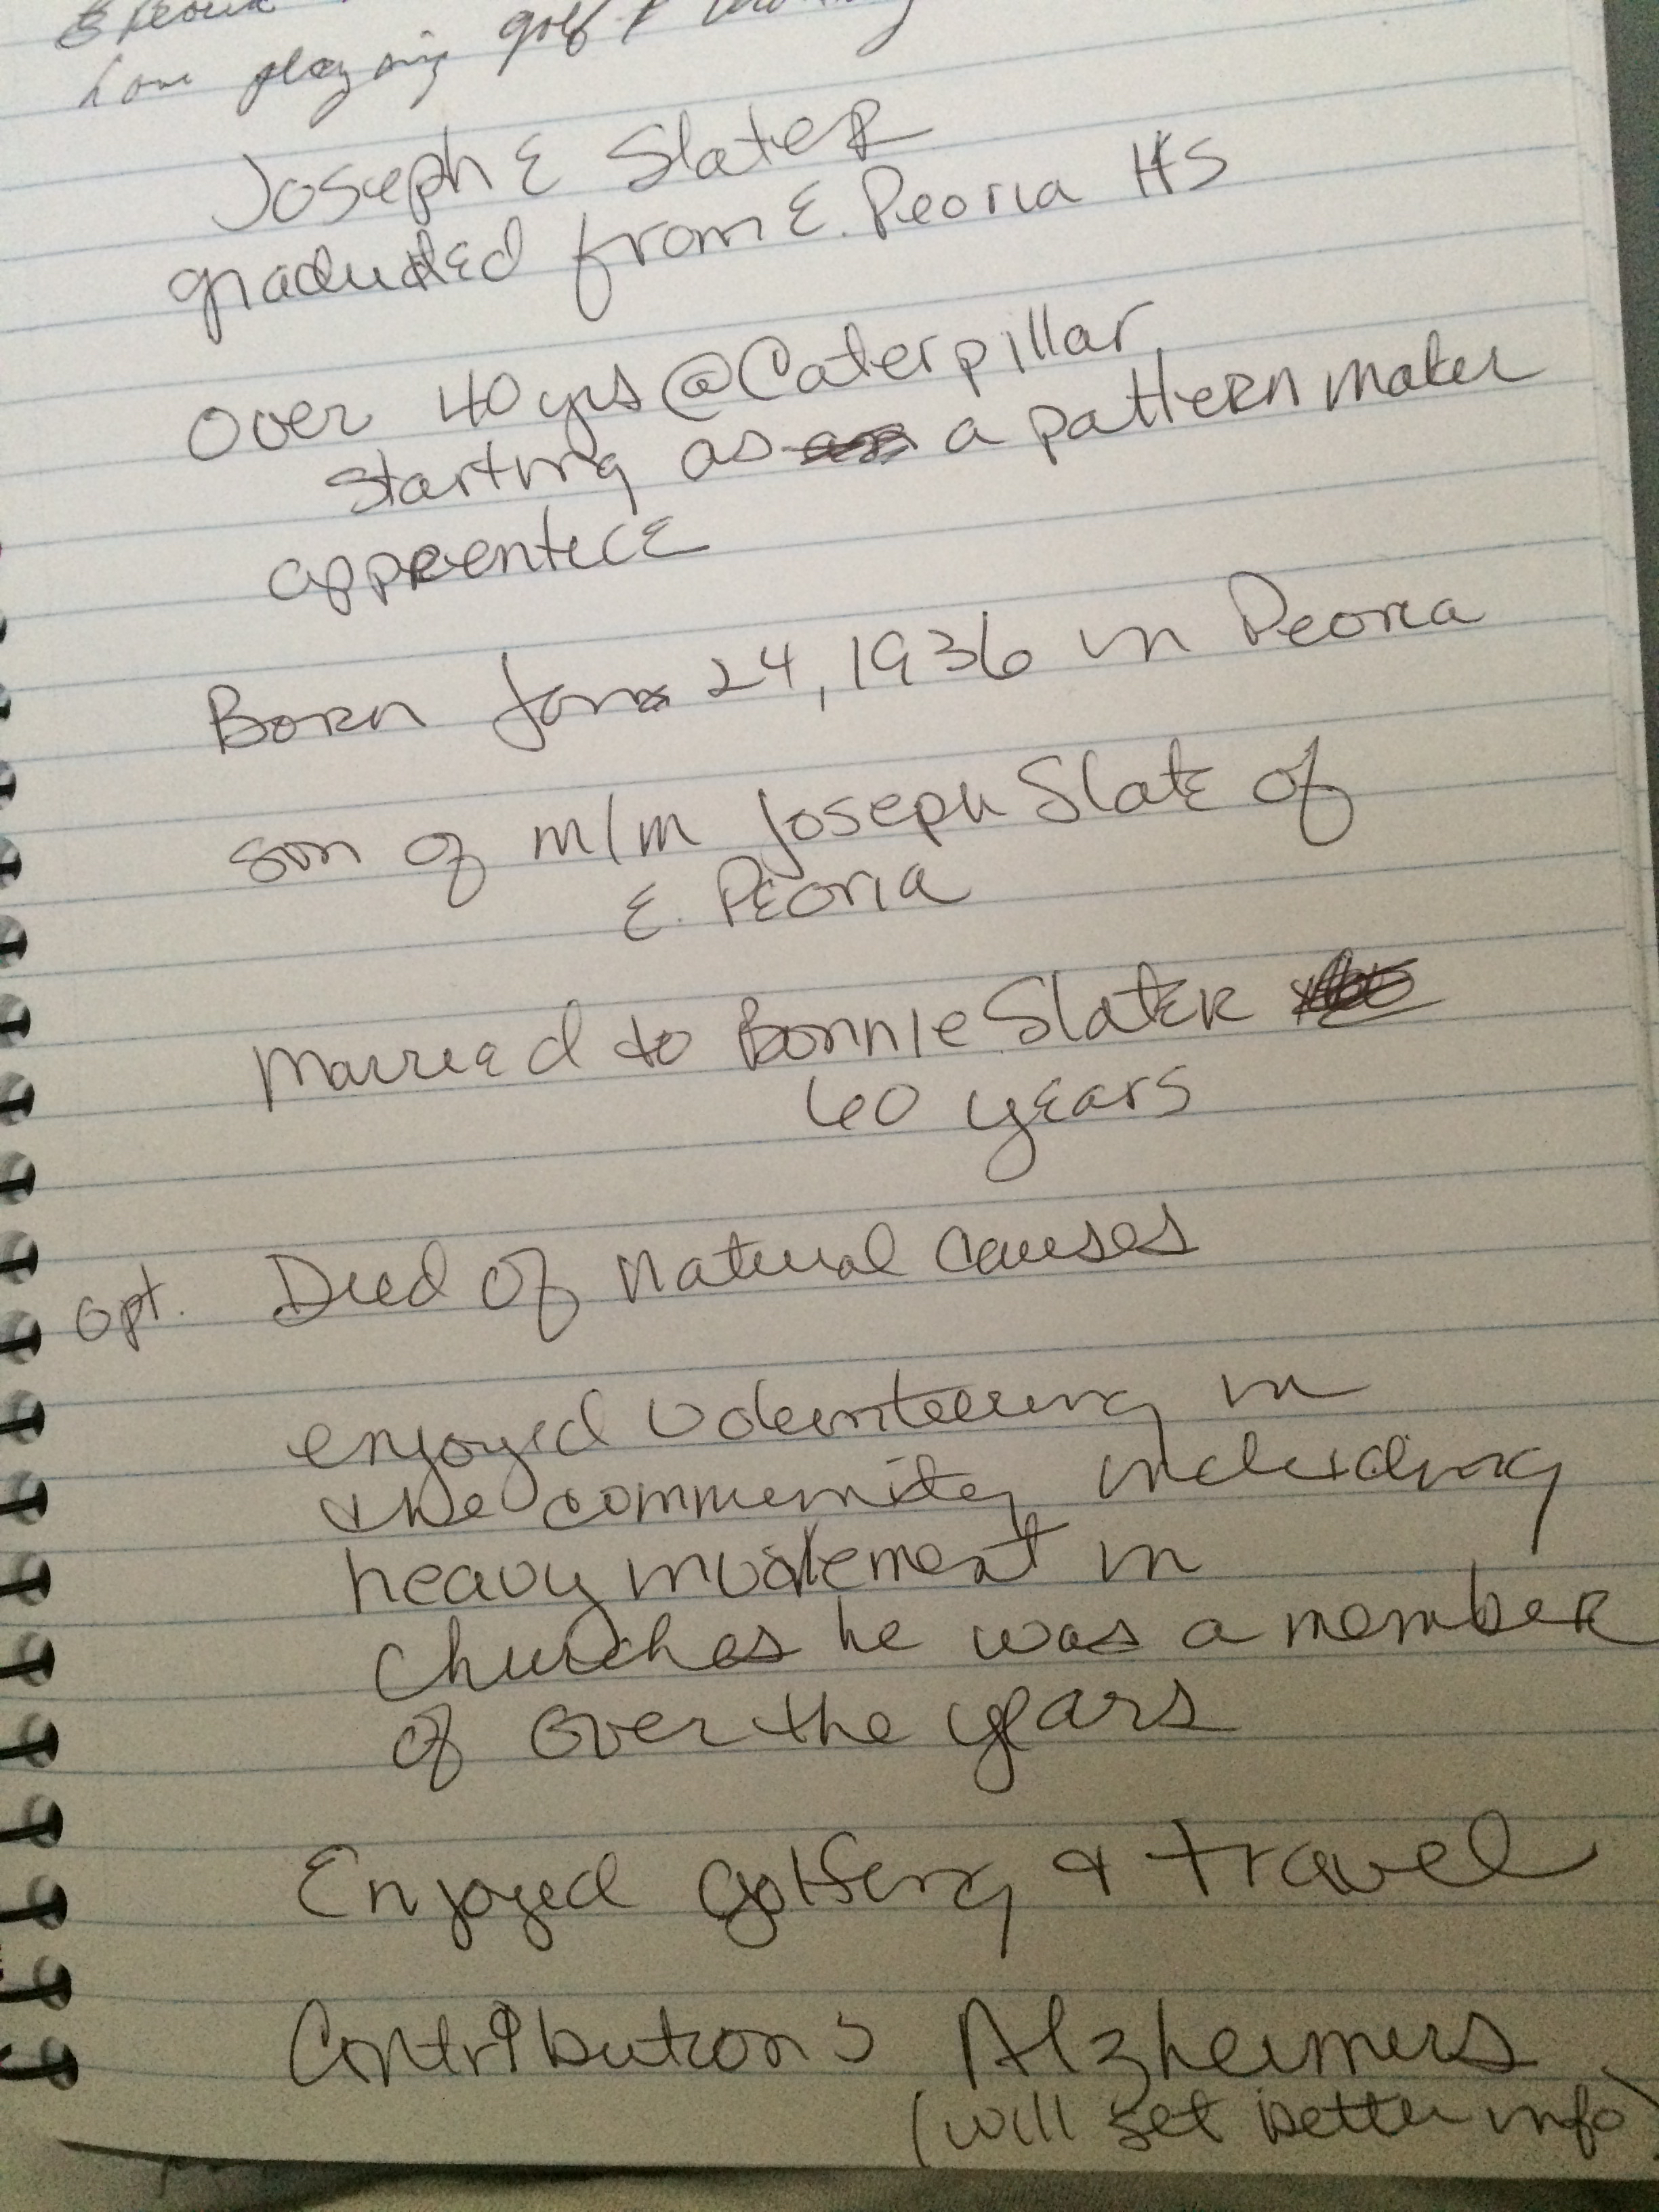 Love playing golf &
Joseph E Slater
graduated from E. Peoria HS
Over 40 yrs @ Caterpillar,
starting as a pattern maker
apprentice
Born Jan 24, 1936 in Peoria
son of m/m Joseph Slate of
E. Peoria
Married to Bonnie Slater
60 years
opt. Died of natural causes
enjoyed volunteering in
the community including
heavy involvement in
churches he was a member
of over the years
Enjoyed golfing & travel
Contributions Alzheimers
(will get better info)